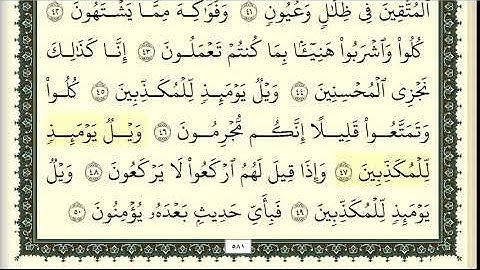 ٱلۡمُتَّقِينَ فِي ظِلَٰلٖ وَعُيُونٖ ٤١ وَفَوَٰكِهَ مِمَّا يَشۡتَهُونَ ٤٢
كُلُواْ وَٱشۡرَبُواْ هَنِيٓـَٔۢا بِمَا كُنتُمۡ تَعۡمَلُونَ ٤٣ إِنَّا كَذَٰلِكَ
نَجۡزِي ٱلۡمُحۡسِنِينَ ٤٤ وَيۡلٞ يَوۡمَئِذٖ لِّلۡمُكَذِّبِينَ ٤٥ كُلُواْ
وَتَمَتَّعُواْ قَلِيلًا إِنَّكُم مُّجۡرِمُونَ ٤٦ وَيۡلٞ يَوۡمَئِذٖ
لِّلۡمُكَذِّبِينَ ٤٧ وَإِذَا قِيلَ لَهُمُ ٱرۡكَعُواْ لَا يَرۡكَعُونَ ٤٨ وَيۡلٞ
يَوۡمَئِذٖ لِّلۡمُكَذِّبِينَ ٤٩ فَبِأَيِّ حَدِيثِۭ بَعۡدَهُۥ يُؤۡمِنُونَ ٥٠
٥٨١